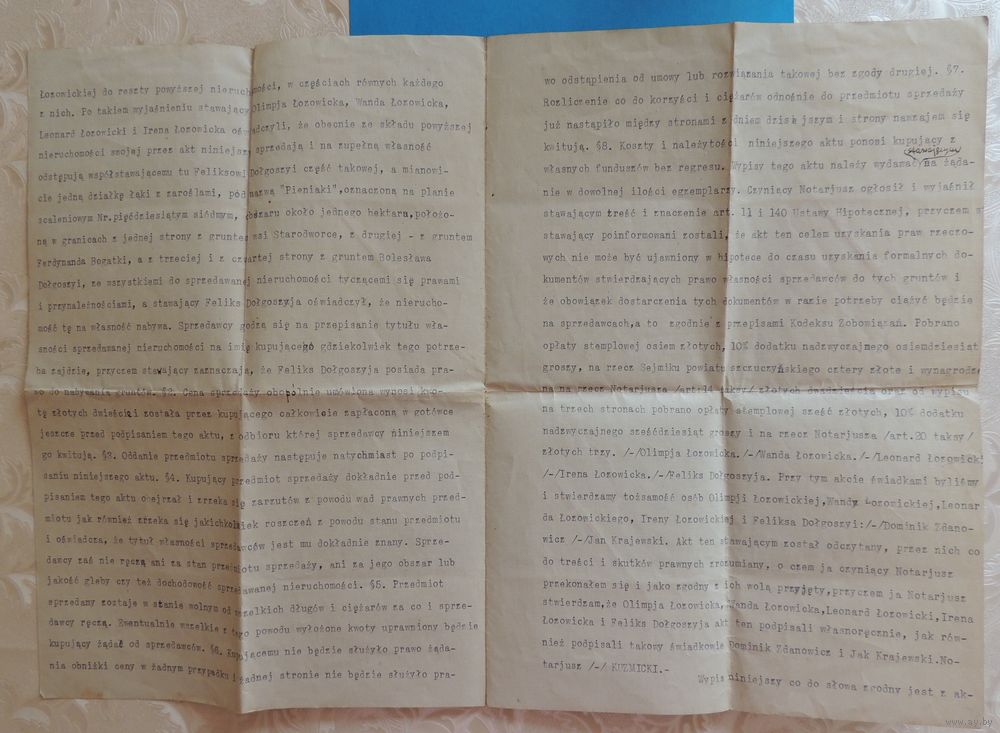 Łozowickiej do reszty powyższej nieruchomości, w częściach równych każdego
z nich. Po takiem wyjaśnieniu stawający Olimpja Łozowicka, Wanda Łozowicka,
Leonard Łozowicki i Irena Łozowicka oświadczyli, że obecnie ze składu powyższej
nieruchomości swojej przez akt niniejszy sprzedają i na zupełną własność
odstępują współstawającemu tu Feliksowi Dołgoszyi część takowej, a mianowi-
cie jedną działkę łąki z zaroślami, pod nazwą "Pieniaki", oznaczoną na planie
scaleniowym Nr. pięćdziesiątym siódmym, obszaru około jednego hektara, położo-
ną w granicach z jednej strony z gruntem wsi Starodworce, z drugiej - z gruntem
Ferdynanda Bogatki, a z trzeciej i z czwartej strony z gruntem Bolesława
Dołgoszyi, ze wszystkiemi do sprzedawanej nieruchomości tyczącemi się prawami
i przynależnościami, a stawający Feliks Dołgoszyja oświadczył, że nierucho-
mość tę na własność nabywa. Sprzedawcy godzą się na przepisanie tytułu wła-
sności sprzedawanej nieruchomości na imię kupującego gdziekolwiek tego potrze-
ba zajdzie, przyczem stawający zaznaczają, że Feliks Dołgoszyja posiada pra-
wo do nabywania gruntów. §2. Cena sprzedaży obopólnie umówiona wynosi kwo-
tę złotych dwieście i została przez kupującego całkowicie zapłaconą w gotówce
jeszcze przed podpisaniem tego aktu, z odbioru której sprzedawcy niniejszem
go kwitują. §3. Oddanie przedmiotu sprzedaży następuje natychmiast po podpi-
saniu niniejszego aktu. §4. Kupujący przedmiot sprzedaży dokładnie przed pod-
pisaniem tego aktu obejrzał i zrzeka się zarzutów z powodu wad prawnych przed-
miotu jak również zrzeka się jakichkolwiek roszczeń z powodu stanu przedmiotu
i oświadcza, że tytuł własności sprzedawców jest mu dokładnie znany. Sprze-
dawcy zaś nie ręczą ani za stan przedmiotu sprzedaży, ani za jego obszar lub
jakość gleby czy też dochodowość sprzedawanej nieruchomości. §5. Przedmiot
sprzedany zostaje w stanie wolnym od wszelkich długów i ciężarów za co i sprze-
dawcy ręczą. Ewentualnie wszelkie z tego powodu wyłożone kwoty uprawniony będzie
kupujący żądać od sprzedawców. §6. Kupującemu nie będzie służyło prawo żąda-
nia obniżki ceny w żadnym przypadku i żadnej stronie nie będzie służyło pra-
wo odstąpienia od umowy lub rozwiązania takowej bez zgody drugiej. §7.
Rozliczenie co do korzyści i ciężarów odnośnie do przedmiotu sprzedaży
już nastąpiło między stronami z dniem dzisiejszym i strony nawzajem się
kwitują. §8. Koszty i należytości niniejszego aktu ponosi kupujący z
własnych funduszów bez regresu. Wypisy tego aktu należy wydawać stawającym na żąda-
nie w dowolnej ilości egzemplarzy. Czyniący Notarjusz ogłosił i wyjaśnił
stawającym treść i znaczenie art. 11 i 140 Ustawy Hipotecznej, przyczem
stawający poinformowani zostali, że akt ten celem uzyskania praw rzeczo-
wych nie może być ujawniony w hipotece do czasu uzyskania formalnych do-
kumentów stwierdzających prawo własności sprzedawców do tych gruntów i
że obowiązek dostarczenia tych dokumentów w razie potrzeby ciążyć będzie
na sprzedawcach, a to zgodnie z przepisami Kodeksu Zobowiązań. Pobrano
opłaty stemplowej osiem złotych, 10% dodatku nadzwyczajnego osiemdziesiat
groszy, na rzecz Sejmiku powiatu szczuczyńskiego cztery złote i wynagrodze
na na rzecz Notarjusza /art.14 taksy/ złotych dwadzieścia oraz od wypisu
na trzech stronach pobrano opłaty stemplowej sześć złotych, 10% dodatku
nadzwyczajnego sześćdziesiąt groszy i na rzecz Notarjusza /art.20 taksy/
złotych trzy. /-/Olimpja Łozowicka./-/Wanda Łozowicka./-/Leonard Łozowicki
/-/Irena Łozowicka./-/Feliks Dołgoszyja. Przy tym akcie świadkami byliśmy
i stwierdzamy tożsamość osób Olimpji Łozowickiej, Wandy Łozowickiej, Leonar
da Łozowickiego, Ireny Łozowickiej i Feliksa Dołgoszyi:/-/Dominik Zdano-
wicz /-/Jan Krajewski. Akt ten stawającym został odczytany, przez nich co
do treści i skutków prawnych zrozumiany, o czem ja czyniący Notarjusz
przekonałem się i jako zgodny z ich wolą przyjęty, przyczem ja Notarjusz
stwierdzam, że Olimpja Łozowicka, Wanda Łozowicka, Leonard Łozowicki, Irena
Łozowicka i Feliks Dołgoszyja akt ten podpisali własnoręcznie, jak rów-
nież podpisali takowy świadkowie Dominik Zdanowicz i Jak Krajewski. No-
tarjusz /-/ KUZMICKI.-
Wypis niniejszy co do słowa zgodny jest z ak-
www.ay.by